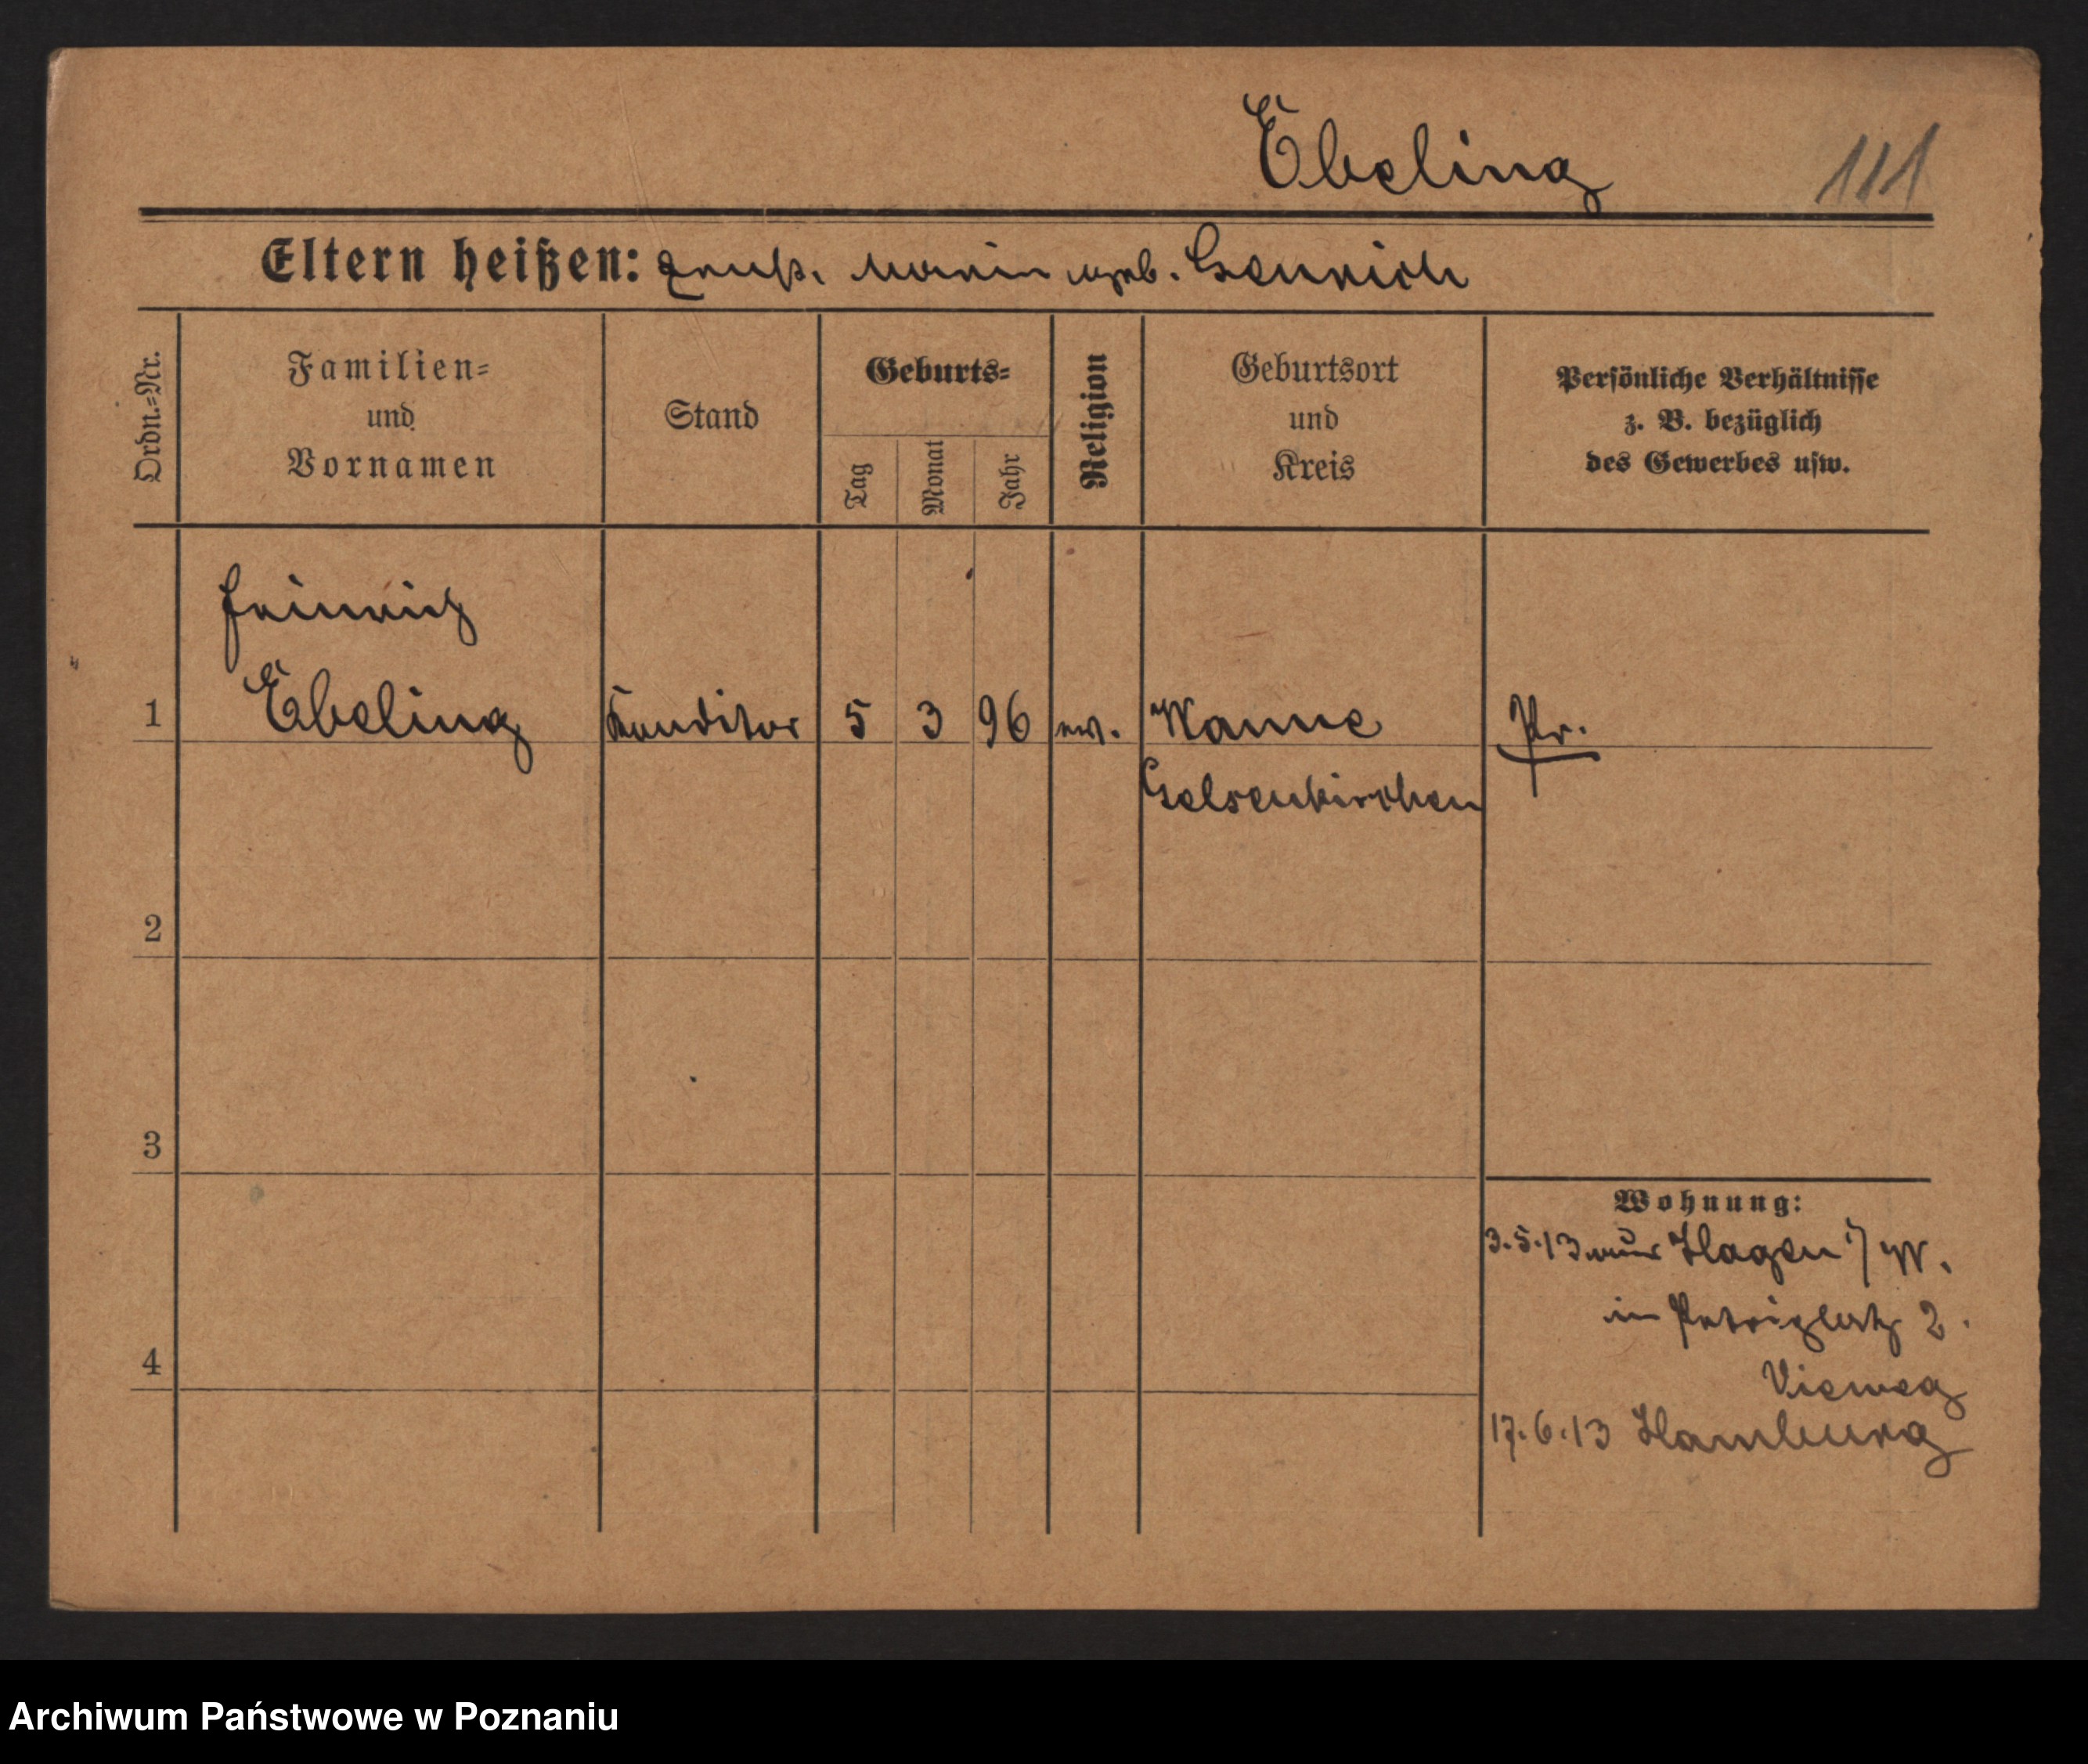 Ebeling 111
Eltern heißen: Maria geb. Genrich
Ordn.-Nr.
Familien-
und
Vornamen
Stand
Geburts-
Tag
Monat
Jahr
Religion
Geburtsort
und
Kreis
Persönliche Verhältnisse
z. B. bezüglich
des Gewerbes usw.
Heinrich
1 Ebeling Konditor 5 3 96 ev. Wanne Pr.
Gelsenkirchen
2
3
Wohnung:
3.5.13 aus Hagen i/W.
in Petriplatz 2.
Vieweg
4
17.6.13 Hamburg
Archiwum Państwowe w Poznaniu